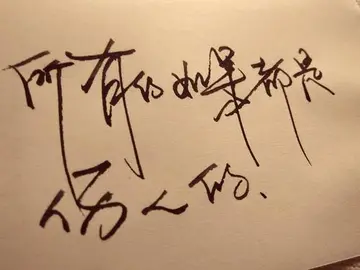 所有的如果都是
伤人的、